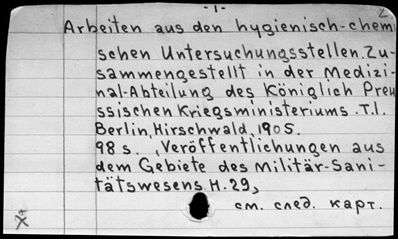 -1-
2
Arbeiten aus den hygienisch-chemi
schen Untersuchungsstellen. Zu-
sammengestellt in der Medizi-
nal-Abteilung des Königlich Preu
ssischen Kriegsministeriums. T.I.
Berlin, Hirschwald, 1905.
98 s. „Veröffentlichungen aus
dem Gebiete des Militär-Sani-
tätswesens. H. 29„
см. след. карт.